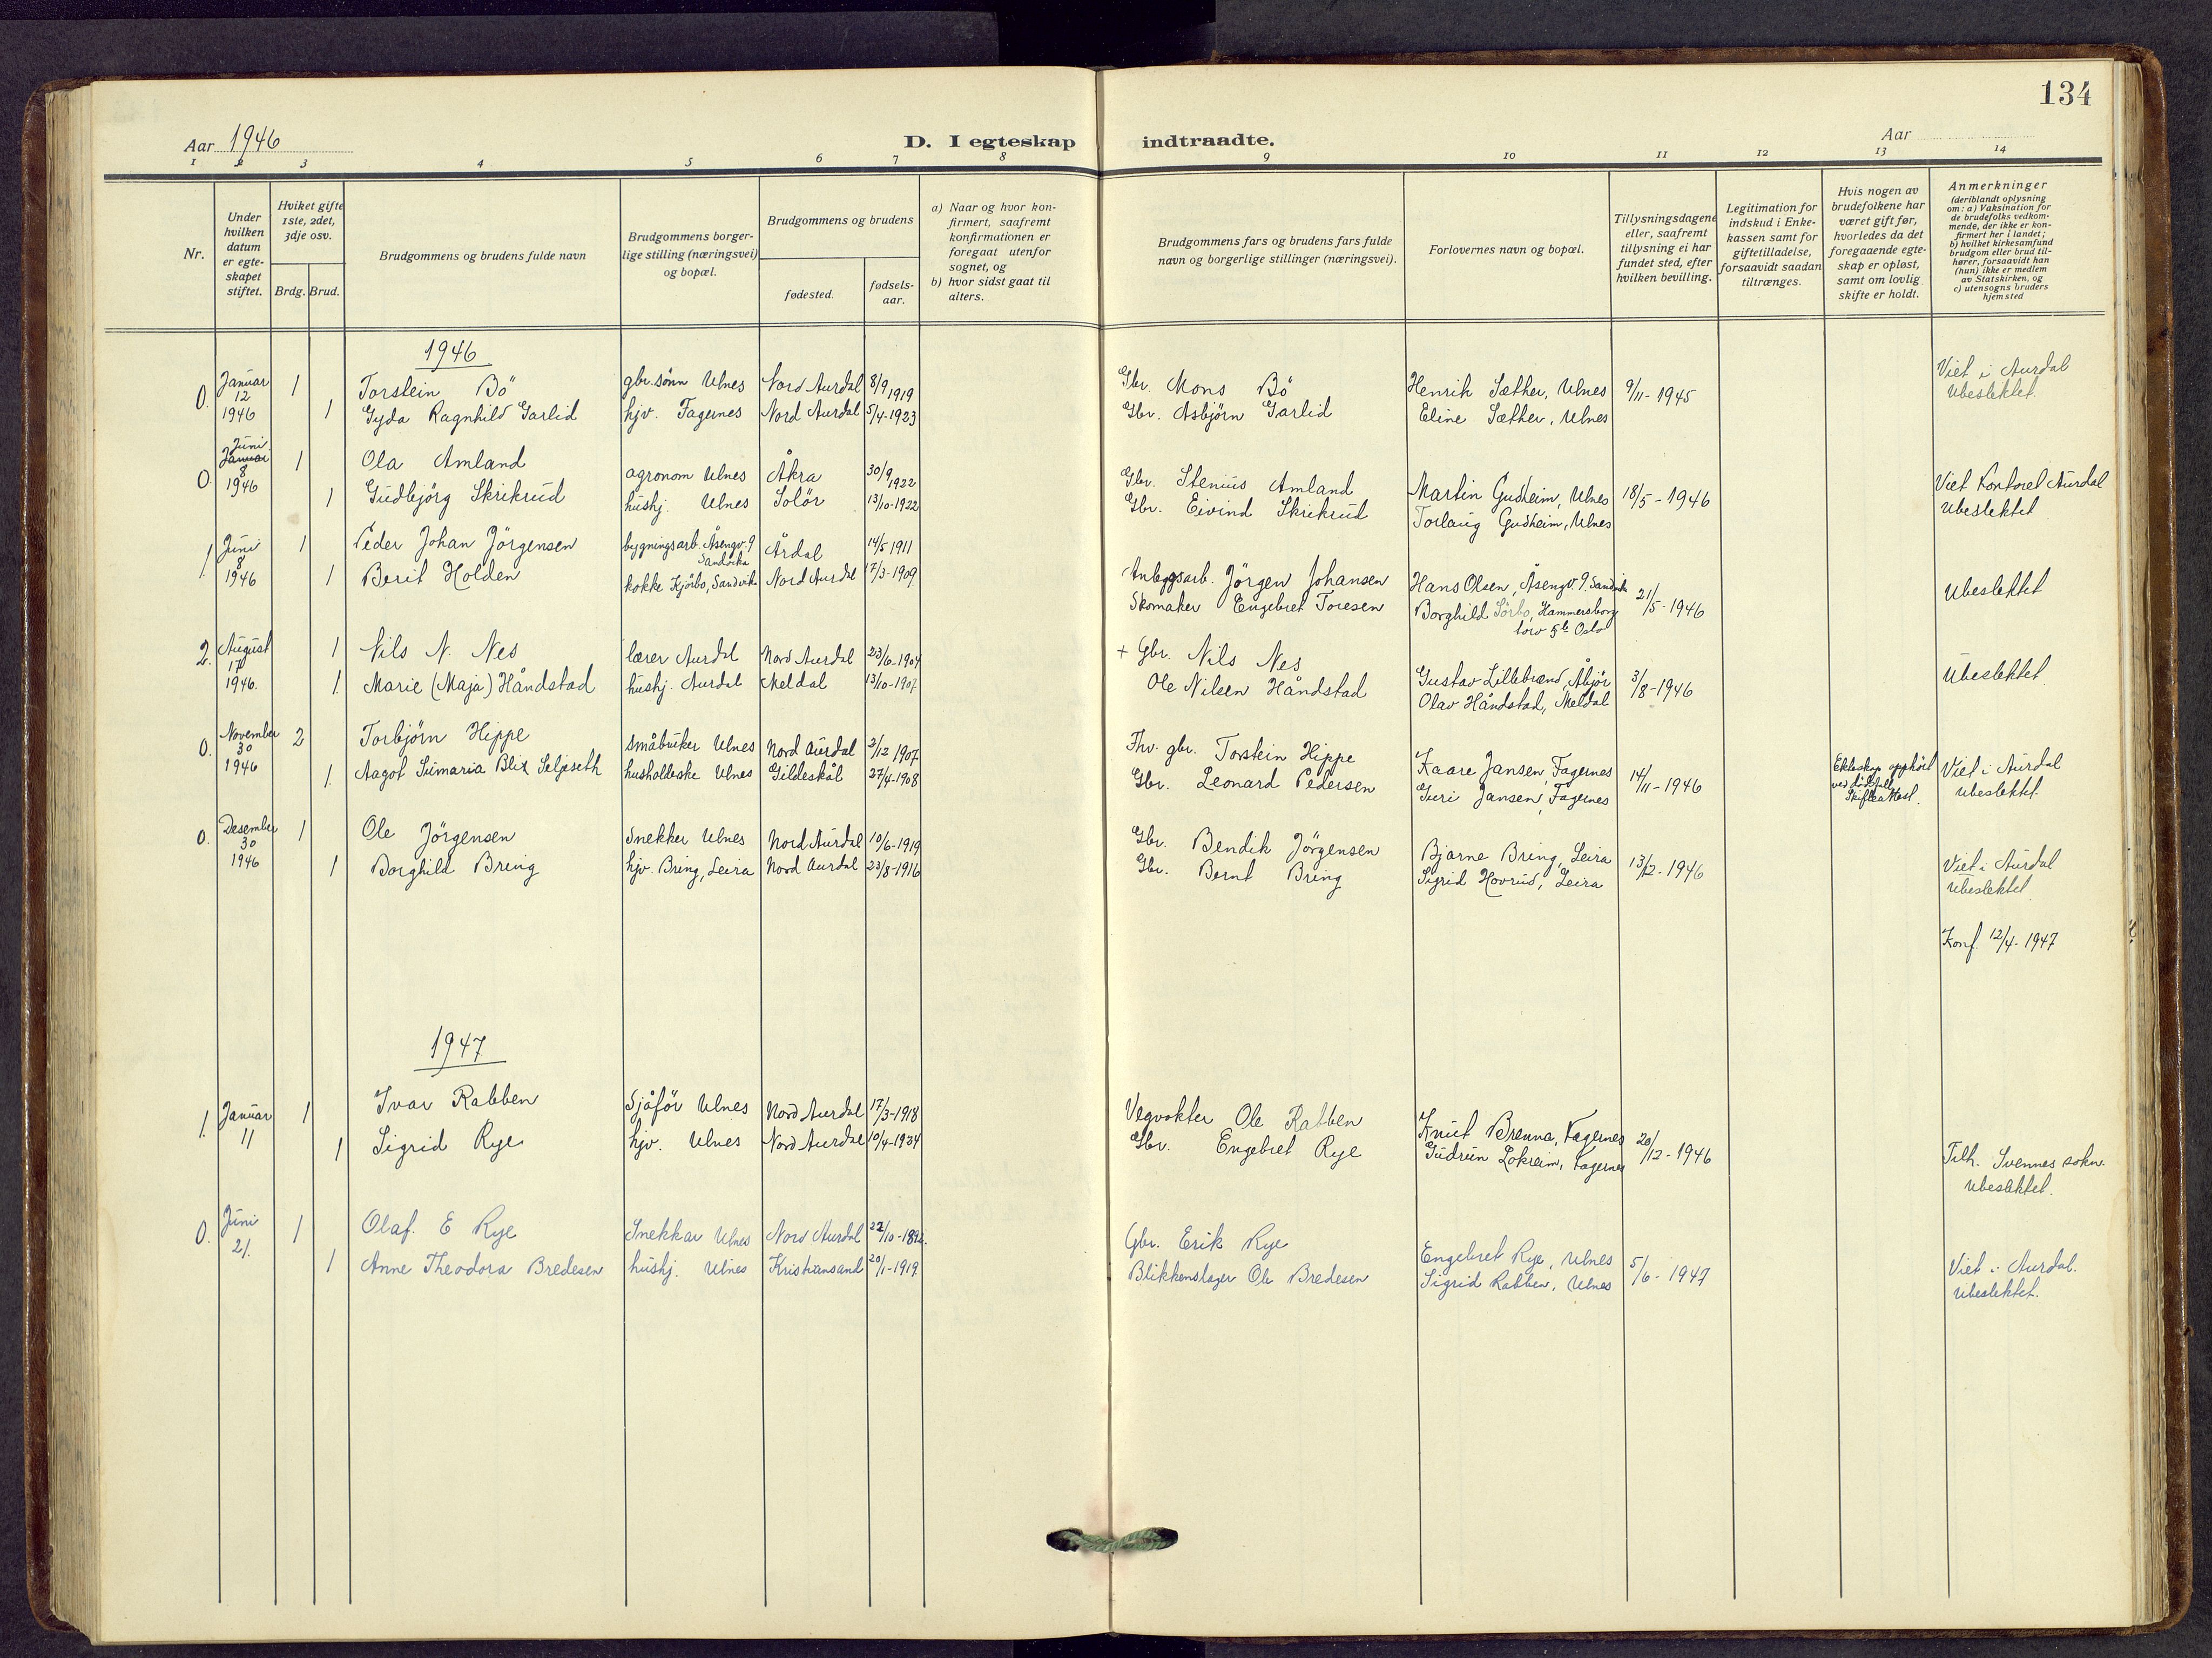 134
Aar 1946
D. I egteskap indtraadte.
Aar
1 2 3 4 5 6 7 8 9 10 11 12 13 14
Nr.
Under hvilken datum er egteskapet stiftet.
Hviket gifte 1ste, 2det, 3dje osv.
Brdg. Brud.
Brudgommens og brudens fulde navn
Brudgommens borgerlige stilling (næringsvei) og bopæl.
Brudgommens og brudens
fødested.
fødselsaar.
a) Naar og hvor konfirmert, saafremt konfirmationen er foregaat utenfor sognet, og
b) hvor sidst gaat til alters.
Brudgommens fars og brudens fars fulde navn og borgerlige stillinger (næringsvei).
Forlovernes navn og bopæl.
Tillysningsdagene eller, saafremt tillysning ei har fundet sted, efter hvilken bevilling.
Legitimation for indskud i Enkekassen samt for giftetilladelse, forsaavidt saadan tiltrænges.
Hvis nogen av brudefolkene har været gift før, hvorledes da det foregaaende egteskap er opløst, samt om lovlig skifte er holdt.
Anmerkninger (deriblandt oplysning om: a) Vaksination for de brudefolks vedkommende, der ikke er konfirmert her i landet; b) hvilket kirkesamfund brudgom eller brud tilhører, forsaavidt han (hun) ikke er medlem av Statskirken, og c) utensogns bruders hjemsted
1946
0. Januar 12 1946 1 Torstein Bö gbr.sønn Ulnes Nord Aurdal 8/9 1919 Gbr. Mons Bö Henrik Sæther, Ulnes 9/11-1945 Viet i Aurdal
1 Gyda Ragnhild Garlid hjv. Fagernes Nord Aurdal 5/4-1923 Gbr. Asbjörn Garlid Eline Sæther, Ulnes Ubeslektet.
0. Juni Januar 8 1946 1 Ola Amland agronom Ulnes Åkra 30/9 1922 Gbr. Stenius Amland Martin Gudheim, Ulnes 18/5-1946 Viet Kontoret Aurdal
1 Gudbjörg Skrikrud hushj. Ulnes Solör 13/10-1922 Gbr. Eivind Skrikrud Torlaug Gudheim, Ulnes Ubeslektet
1. Juni 8 1946 1 Peder Johan Jörgensen bygningsarb. Åsengv. 9 Sandvika Årdal 14/5 1911 Anleggsarb. Jörgen Johansen Hans Olsen, Åsengv. 9. Sandvika 21/5-1946 Ubeslektet
1 Berit Holden kokke Kjörbo, Sandvika Nord Aurdal 17/3-1909 Skomaker Engebret Toresen Borghild Sörbo, Hammersborg torv 5b Oslo
2. August 17 1946. 1 Nils N. Nes lærer Aurdal Nord Aurdal 23/6-1904 + Gbr. Nils Nes Gustav Lillebrend, Åbjör 3/8-1946 Ubeslektet
1. Marie (Maja) Håndstad hushj. Aurdal Meldal 13/10-1907. Ole Nilsen Håndstad Olav Håndstad, Meldal
0. November 30 1946 2 Torbjörn Hippe småbruker Ulnes Nord Aurdal 2/12 1907. Fhv. gbr. Torstein Hippe Kaare Jansen, Fagernes 14/11-1946 Ekteskap opphört ved dödsfall Skifteattest. Viet i Aurdal
1. Aagot Sumaria Blix Seljeseth husholderske Ulnes Gildeskål 27/4-1908 Gbr. Leonard Pedersen Guri Jansen, Fagernes Ubeslektet.
0. Desember 30 1946 1 Ole Jörgensen Snekker Ulnes Nord Aurdal 10/6-1919 Gbr. Bendik Jörgensen Bjarne Bring, Leira 13/12-1946 Viet i Aurdal
1 Borghild Bring hjv. Bring, Leira Nord Aurdal 23/8-1916 Gbr. Bernt Bring Sigrid Hovrud, Leira Ubeslektet
Konf. 12/4-1947
1947
1. Januar 11 1 Ivar Rabben Sjåför Ulnes Nord Aurdal 17/3-1918 Vegvokter Ole Rabben Knut Brenna, Fagernes 20/12-1946 Tilh. Svennes sokn.
1 Sigrid Rye hjv. Ulnes Nord Aurdal 10/4-1924 Gbr. Engebret Rye Gudrun Lokreim, Fagernes Ubeslektet.
0. Juni 21. 1 Olaf. E Rye Snekkar Ulnes Nord Aurdal 22/10- Gbr. Erik Rye Engebret Rye, Ulnes 5/6-1947 Viet i Aurdal.
1 Anne Theodora Bredesen hushj. Ulnes Kristiansand 20/1-1919 Blikkenslager Ole Bredesen Sigrid Rabben, Ulnes Ubeslektet.